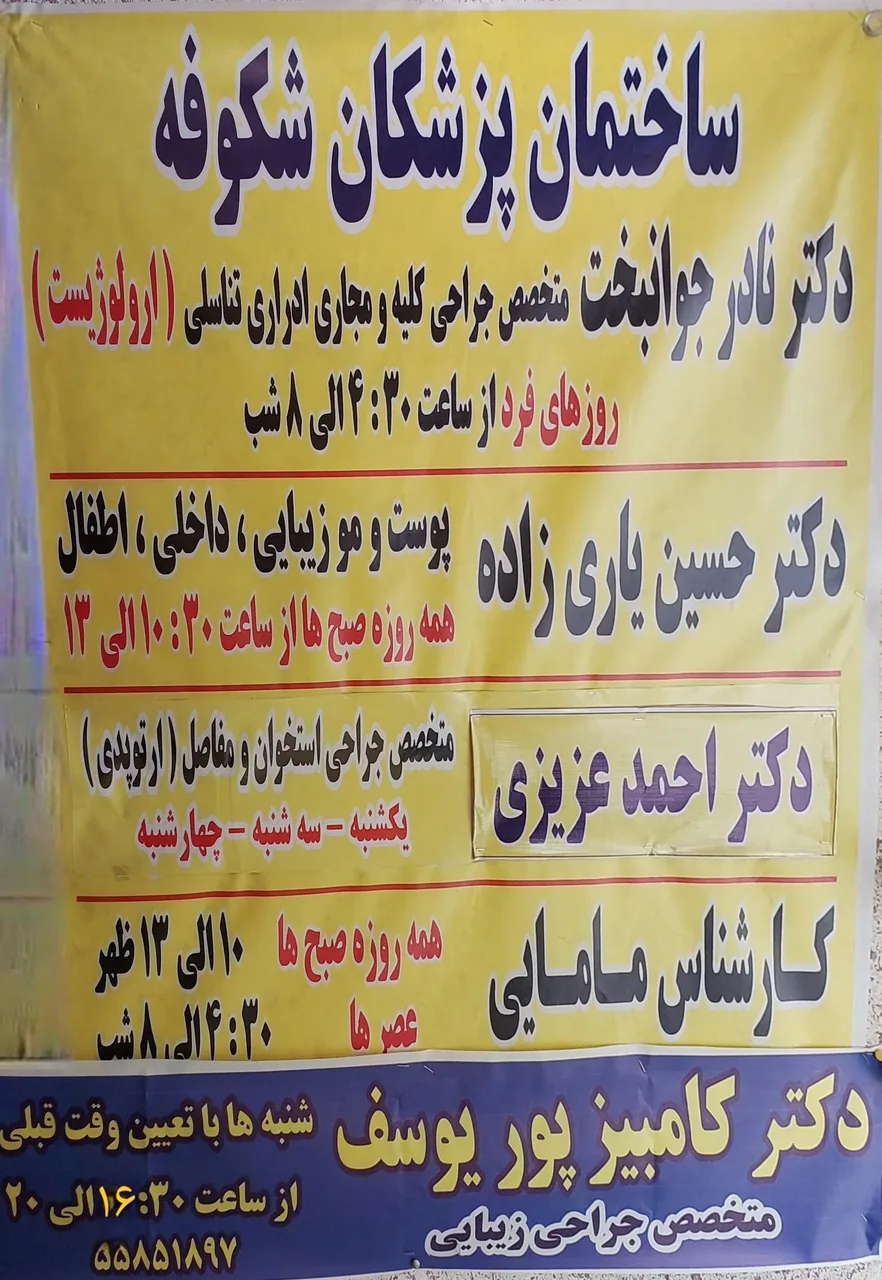 ساختمان پزشکان شکوفه
دکتر نادر جوانبخت متخصص جراحی کلیه و مجاری ادراری تناسلی (ارولوژیست)
روزهای فرد از ساعت ۴:۳۰ الی ۸ شب
دکتر حسین یاری زاده
پوست و مو زیبایی ، داخلی ، اطفال
همه روزه صبح ها از ساعت ۱۰:۳۰ الی ۱۳
دکتر احمد عزیزی
متخصص جراحی استخوان و مفاصل (ارتوپدی)
یکشنبه - سه شنبه - چهارشنبه
کارشناس مامایی
همه روزه صبح ها ۱۰ الی ۱۳ ظهر
عصر ها ۴:۳۰ الی ۸ شب
دکتر کامبیز پور یوسف
متخصص جراحی زیبایی
شنبه ها با تعیین وقت قبلی
از ساعت ۱۶:۳۰ الی ۲۰
۵۵۸۵۱۸۹۷